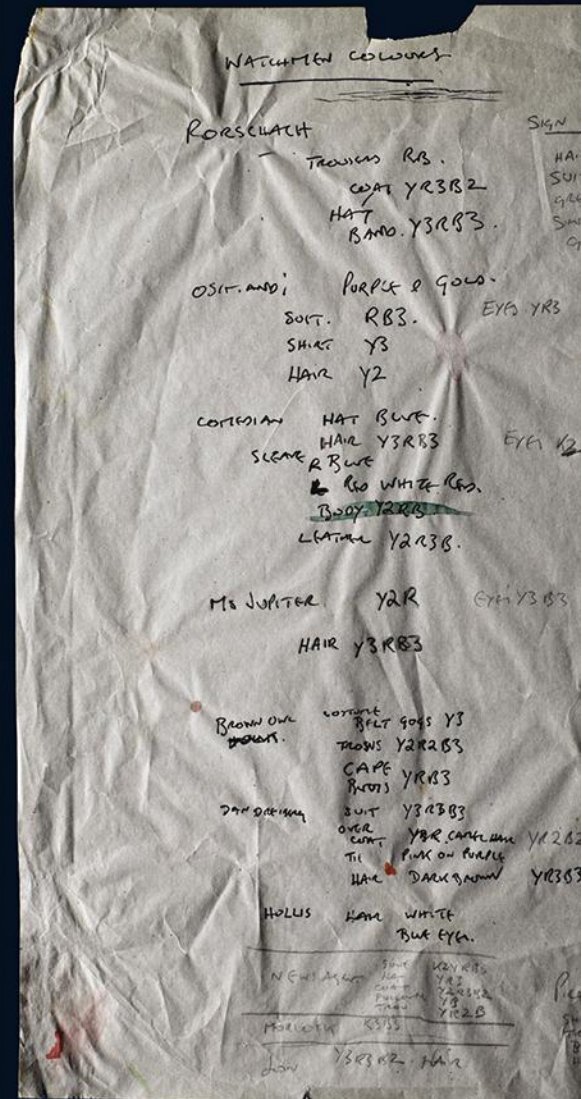 WATCHMEN COLOURS
RORSCHACH
TROUSERS RB.
COAT YR3B2
HAT
BAND. Y3RB3.
SIGN
HAI
SUI
OSIT. AND; PURPLE & GOLD.
SUIT. RB3.
SHIRT Y3
HAIR Y2
EYES YR3
COMEDIAN HAT BLUE.
HAIR Y3RB3
EYES K2
SLEAVE R BLUE
L RED WHITE RED.
BODY. Y2RB3
LEATHER Y2R3B.
MS JUPITER. Y2R
EYES Y3B3
HAIR Y3RB3
BROWN OWL COSTUME
BELT GOGS Y3
TROUS Y2R2B3
CAPE
BOOTS YRB3
DAN DREIBERG SUIT Y3R3B3
OVER
COAT YBR. CAMEL HAIR YR2B2
TIE PINK ON PURPLE
HAIR DARK BROWN YR3B3
HOLLIS HAIR WHITE
BLUE EYES.
NEWSAGENT
HAT YR3
COAT Y2R3B2
Y3
TROU YR2B
Y3R3K2. HAIR